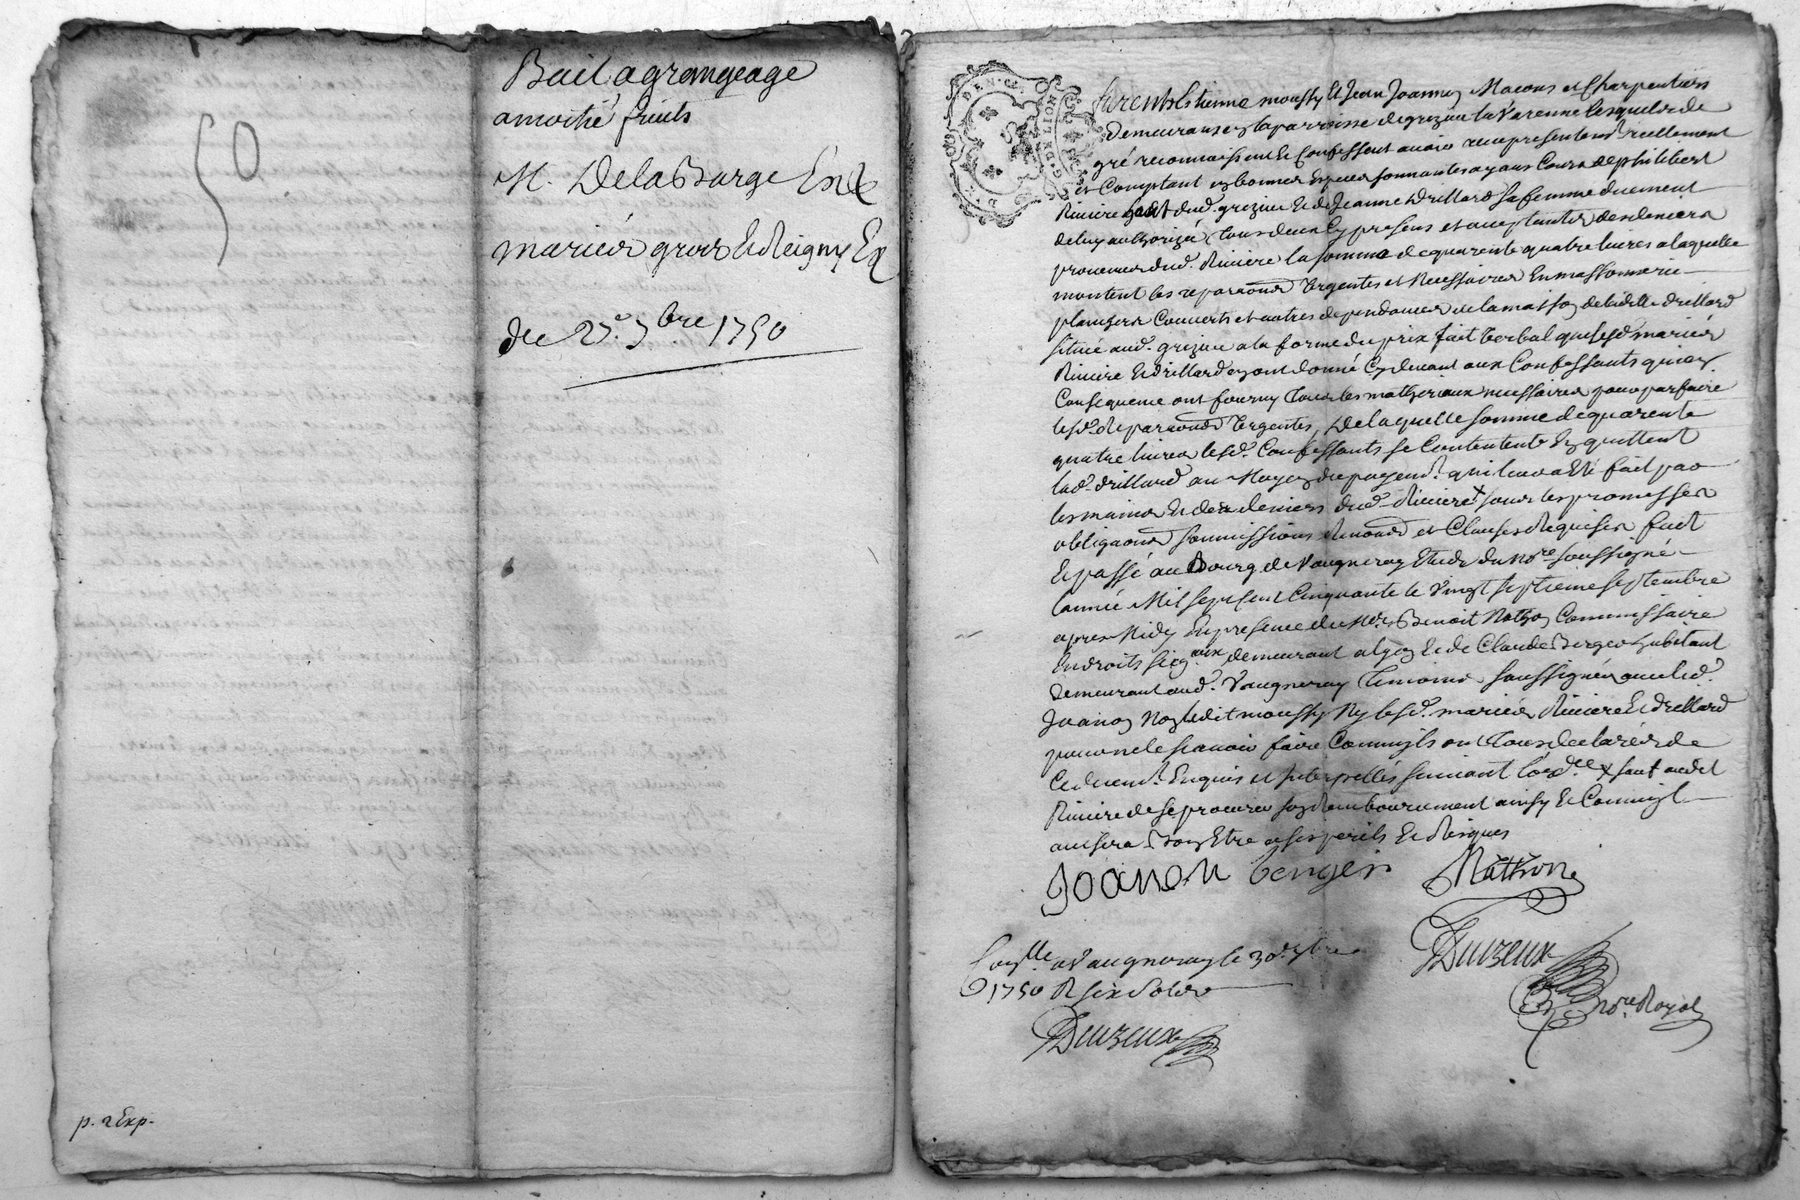 50
Bail a grangeage
a moitié fruits
M. Delabarge Et
mariés gros Et Reigny Ex
du 27e. 7bre 1750
p. 2 Exp.
GEN. DE LION
furent Estienne moussy Et Jean Joannon Macons et Charpentiers
demeurans en la parroisse de grezieu la Varenne lesquels de
gré reconnaissent Et Confessent avoir receu presentement reellement
et Comptant en bonnes Especes sonnantes ayans Cours de philibert
Riviere dud. grezieu Et de Jeanne Drillard sa femme duement
de luy authorizée tous deux Cy presens et acceptants des deniers
provenus dud. Riviere la somme de quarente quatre livres a laquelle
montent les reparaons Urgentes et Necessaires En massonnerie
planchers Couverts et autres dependances de la maison de ladite drillard
située aud. grezieu a la forme du prix fait Verbal que lesd. mariés
Riviere Et drillard ayant donné Cy devant aux Confessants qui en
Consequence ont fourny tous les matheriaux necessaires pour parfaire
lesd. Reparaons Urgentes, De laquelle somme de quarente
quatre livres lesd. Confessants se Contentent En quittent
lad. drillard au Moyen du payemt. qui leur a Eté fait par
les mains Et des deniers dud. Riviere x sous les promesses
obligaons soumissions Renons et Clauses Requises fait
Et passé au Bourg de Vaugneray Etude du Nore soussigné
l'année Mil sept cent Cinquante le Vingt septieme septembre
apres Midy En presence de Me. Benoit Mathon Commissaire
En droits seigaux demeurant a Et de Claude Berger habitant
demeurant aud. Vaugneray temoins soussignés avec led.
Joanon Non ledit moussy Ny lesd. mariés Riviere Et drillard
pour ne le scavoir faire Comm'ils ont tous declarés de
Ce duemt. Enquis et Interpellés suivant l'ordce x sauf audit
Riviere de se procurer son Remboursement ainsy Et Comm'il
avisera bon Etre a ses perils Et Risques
Joanon berger Mathon
Durzeux
Nore. Royal
Conlle a Vaugneray le 30e. 7bre
1750 R six sols
Durzeux